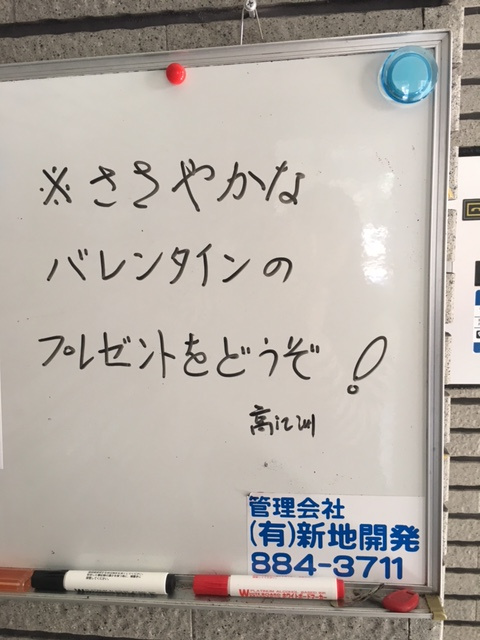 ※ささやかな
バレンタインの
プレゼントをどうぞ!
高江洲
管理会社
(有)新地開発
884-3711